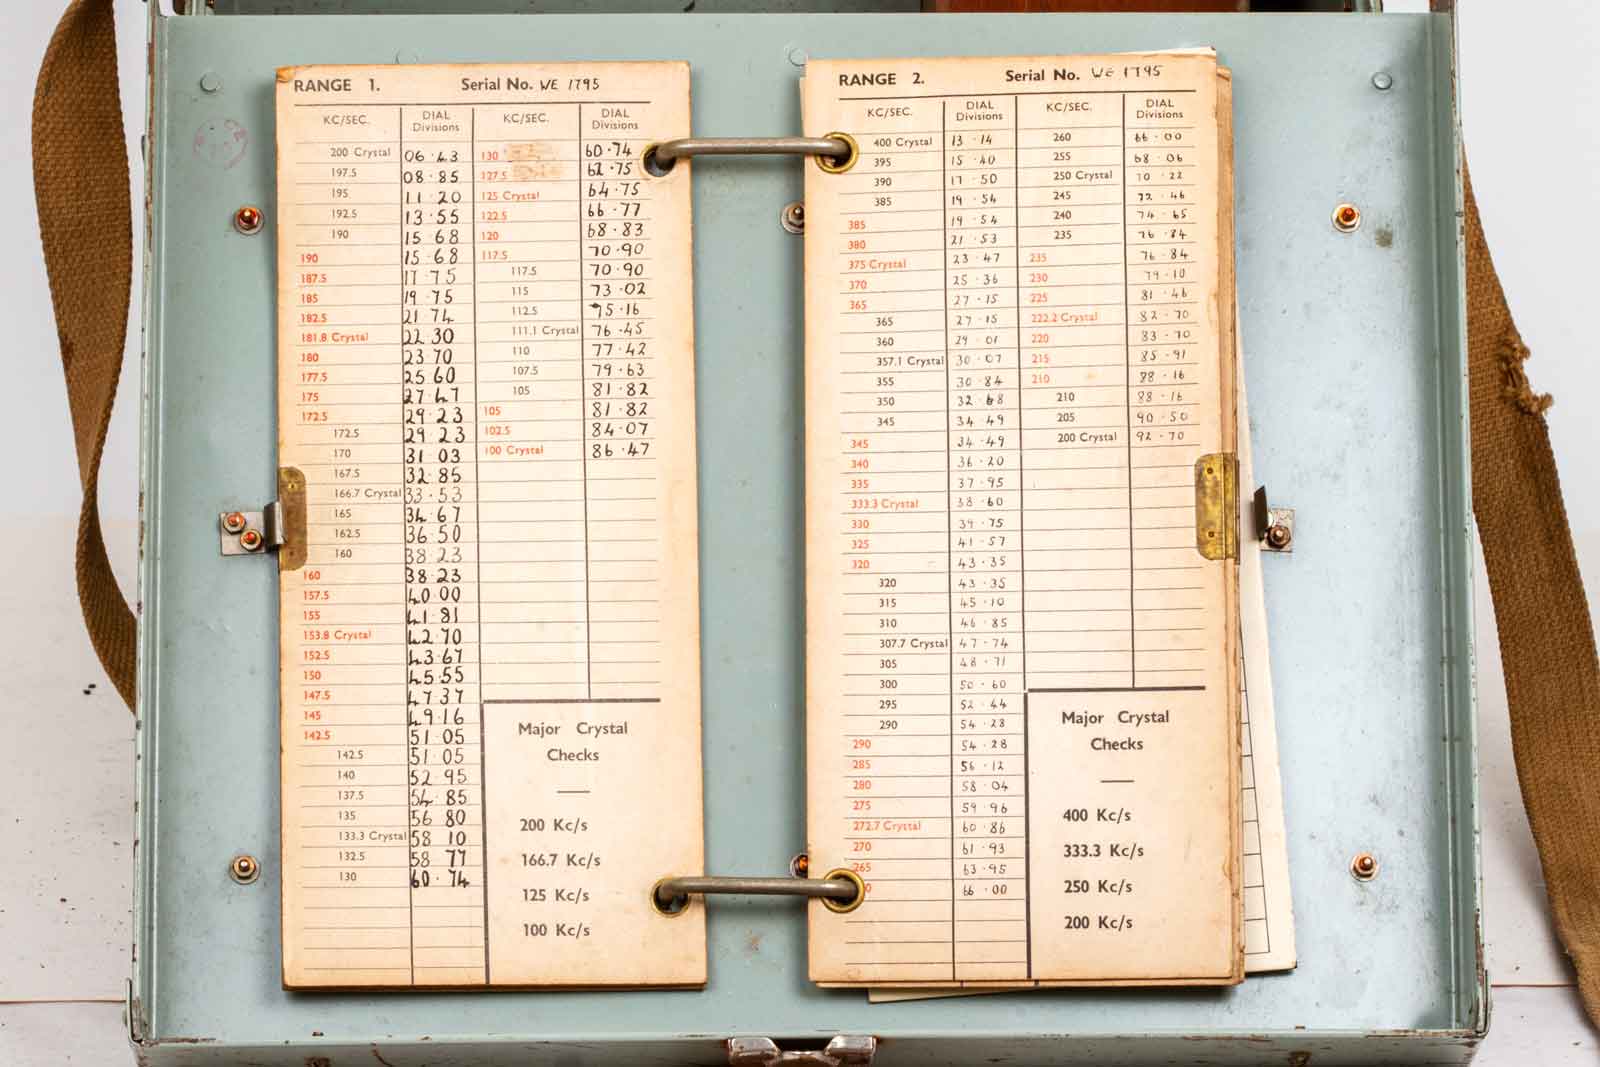 RANGE 1. Serial No. WE 1795
KC/SEC. DIAL Divisions KC/SEC. DIAL Divisions
200 Crystal 06·43 130 60·74
197.5 08·85 127.5 62·75
195 11·20 125 Crystal 64·75
192.5 13·55 122.5 66·77
190 15·68 120 68·83
190 15·68 117.5 70·90
187.5 17·75 117.5 70·90
185 19·75 115 73·02
182.5 21·74 112.5 75·16
181.8 Crystal 22·30 111.1 Crystal 76·45
180 23·70 110 77·42
177.5 25·60 107.5 79·63
175 27·47 105 81·82
172.5 29·23 105 81·82
172.5 29·23 102.5 84·07
170 31·03 100 Crystal 86·47
167.5 32·85
166.7 Crystal 33·53
165 34·67
162.5 36·50
160 38·23
160 38·23
157.5 40·00
155 41·81
153.8 Crystal 42·70
152.5 43·67
150 45·55
147.5 47·37
145 49·16
142.5 51·05
142.5 51·05
140 52·95
137.5 54·85
135 56·80
133.3 Crystal 58·10
132.5 58·77
130 60·74
Major Crystal
Checks
200 Kc/s
166.7 Kc/s
125 Kc/s
100 Kc/s
RANGE 2. Serial No. WE 1795
KC/SEC. DIAL Divisions KC/SEC. DIAL Divisions
400 Crystal 13·14 260 66·00
395 15·40 255 68·06
390 17·50 250 Crystal 70·22
385 19·54 245 72·46
385 19·54 240 74·65
380 21·53 235 76·84
375 Crystal 23·47 235 76·84
370 25·36 230 79·10
365 27·15 225 81·46
365 27·15 222.2 Crystal 82·70
360 29·01 220 83·70
357.1 Crystal 30·07 215 85·91
355 30·84 210 88·16
350 32·68 210 88·16
345 34·49 205 90·50
345 34·49 200 Crystal 92·70
340 36·20
335 37·95
333.3 Crystal 38·60
330 39·75
325 41·57
320 43·35
320 43·35
315 45·10
310 46·85
307.7 Crystal 47·74
305 48·71
300 50·60
295 52·44
290 54·28
290 54·28
285 56·12
280 58·04
275 59·96
272.7 Crystal 60·86
270 61·93
265 63·95
66·00
Major Crystal
Checks
400 Kc/s
333.3 Kc/s
250 Kc/s
200 Kc/s